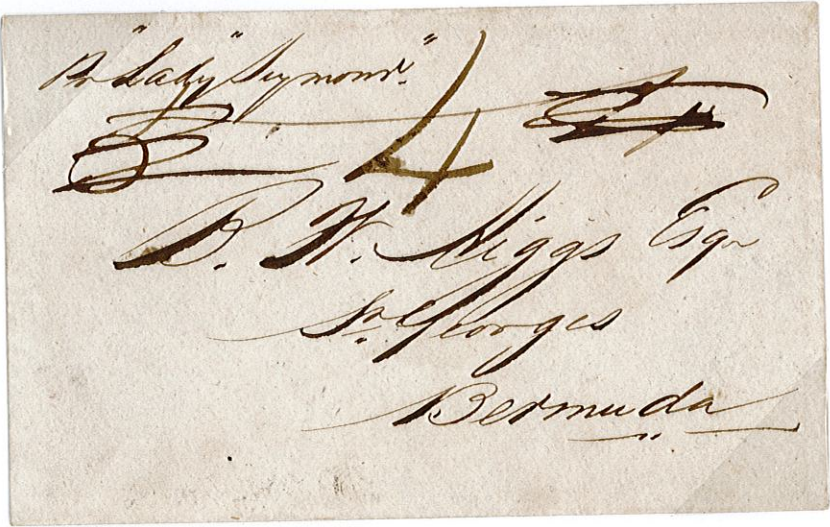 Pr "Lady" Seymour"
4
B. W. Higgs Esqr
St. Georges
Bermuda